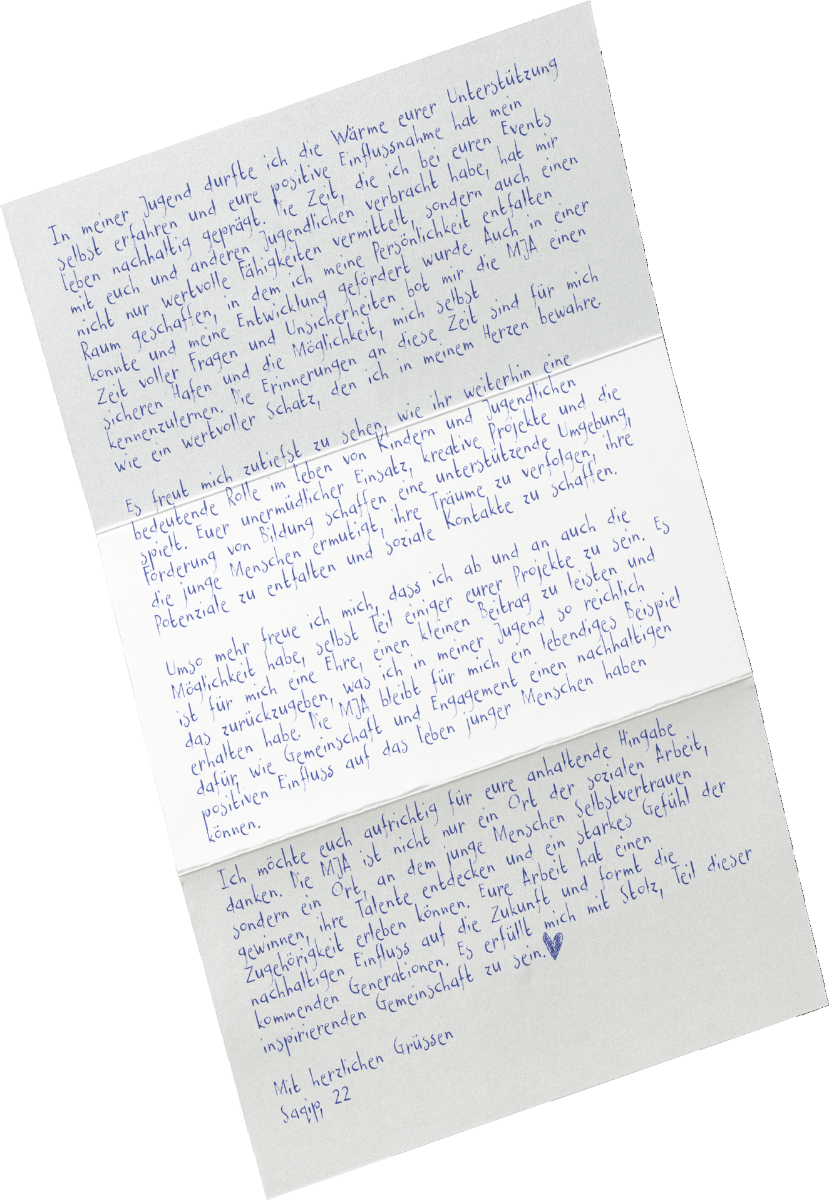 In meiner Jugend durfte ich die Wärme eurer Unterstützung
selbst erfahren und eure positive Einflussnahme hat mein
Leben nachhaltig geprägt. Die Zeit, die ich bei euren Events
mit euch und anderen Jugendlichen verbracht habe, hat mir
nicht nur wertvolle Fähigkeiten vermittelt, sondern auch einen
Raum geschaffen, in dem ich meine Persönlichkeit entfalten
konnte und meine Entwicklung gefördert wurde. Auch in einer
Zeit voller Fragen und Unsicherheiten bot mir die MJA einen
sicheren Hafen und die Möglichkeit, mich selbst
kennenzulernen. Die Erinnerungen an diese Zeit sind für mich
wie ein wertvoller Schatz, den ich in meinem Herzen bewahre.

Es freut mich zutiefst zu sehen, wie ihr weiterhin eine
bedeutende Rolle im Leben von Kindern und Jugendlichen
spielt. Euer unermüdlicher Einsatz, kreative Projekte und die
Förderung von Bildung schaffen eine unterstützende Umgebung,
die junge Menschen ermutigt, ihre Träume zu verfolgen, ihre
Potenziale zu entfalten und soziale Kontakte zu schaffen.

Umso mehr freue ich mich, dass ich ab und an auch die
Möglichkeit habe, selbst Teil einiger eurer Projekte zu sein. Es
ist für mich eine Ehre, einen kleinen Beitrag zu leisten und
das zurückzugeben, was ich in meiner Jugend so reichlich
erhalten habe. Die MJA bleibt für mich ein lebendiges Beispiel
dafür, wie Gemeinschaft und Engagement einen nachhaltigen
positiven Einfluss auf das Leben junger Menschen haben
können.

Ich möchte euch aufrichtig für eure anhaltende Hingabe
danken. Die MJA ist nicht nur ein Ort der sozialen Arbeit,
sondern ein Ort, an dem junge Menschen Selbstvertrauen
gewinnen, ihre Talente entdecken und ein starkes Gefühl der
Zugehörigkeit erleben können. Eure Arbeit hat einen
nachhaltigen Einfluss auf die Zukunft und formt die
kommenden Generationen. Es erfüllt mich mit Stolz, Teil dieser
inspirierenden Gemeinschaft zu sein.

Mit herzlichen Grüssen
Saqip, 22